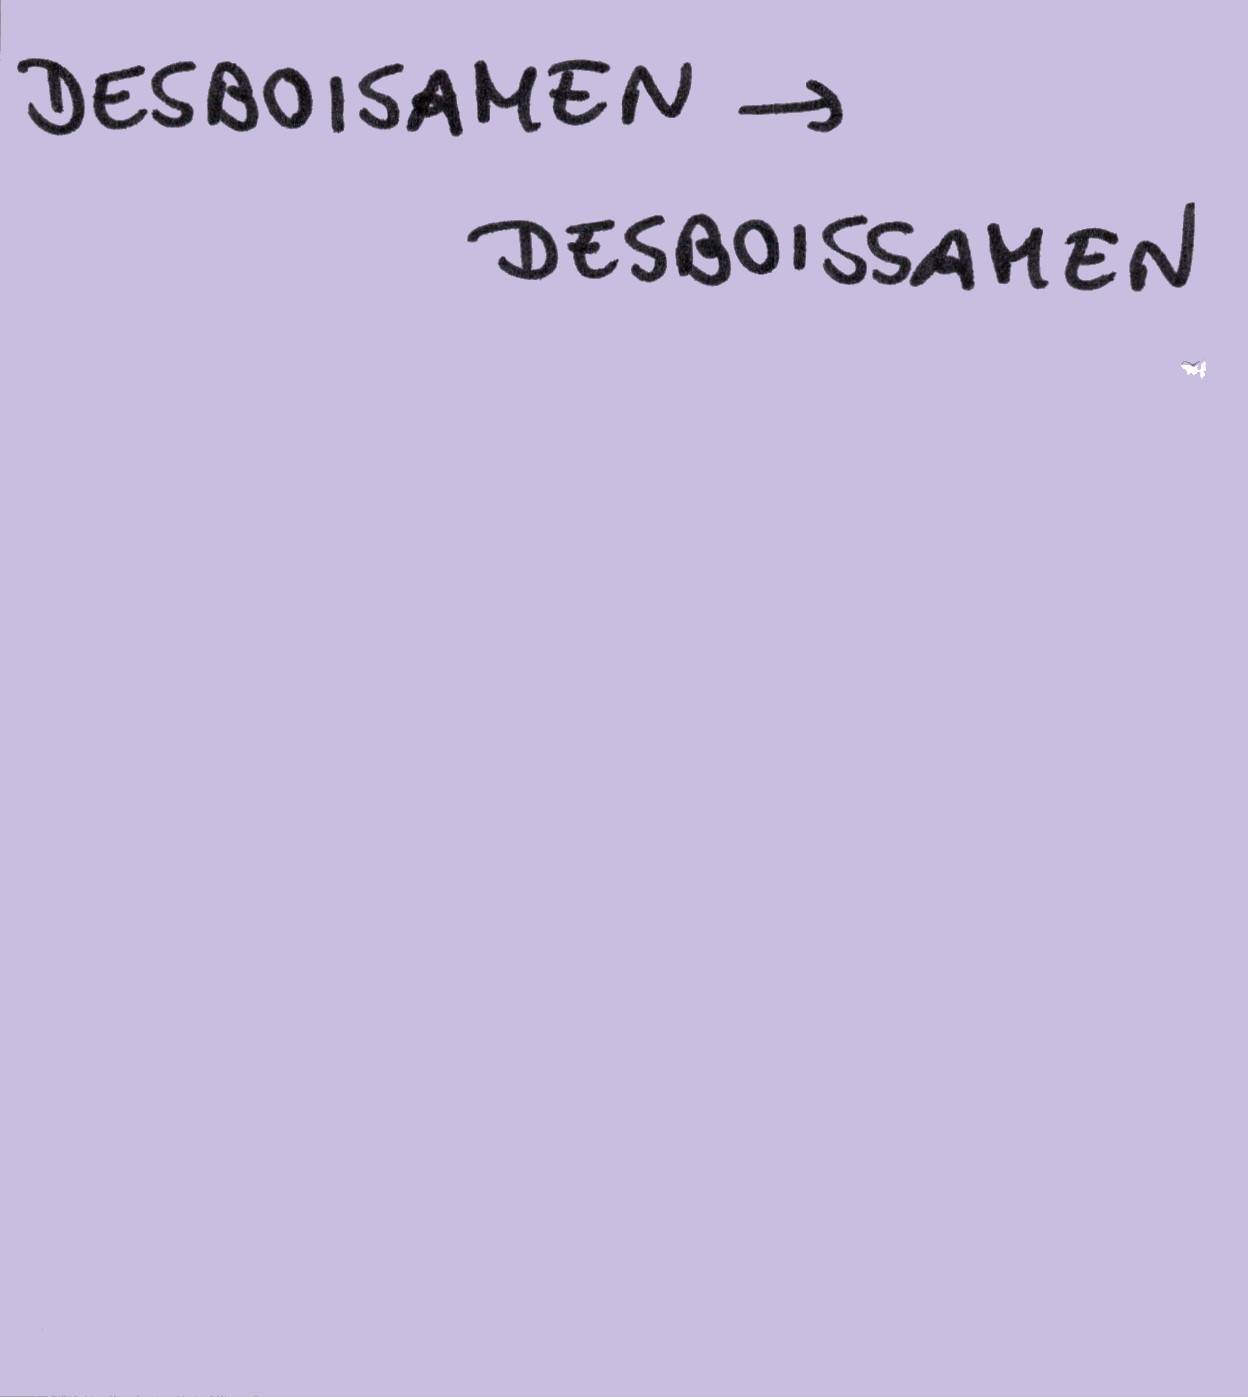 DESBOISAMEN →
DESBOISSAMEN